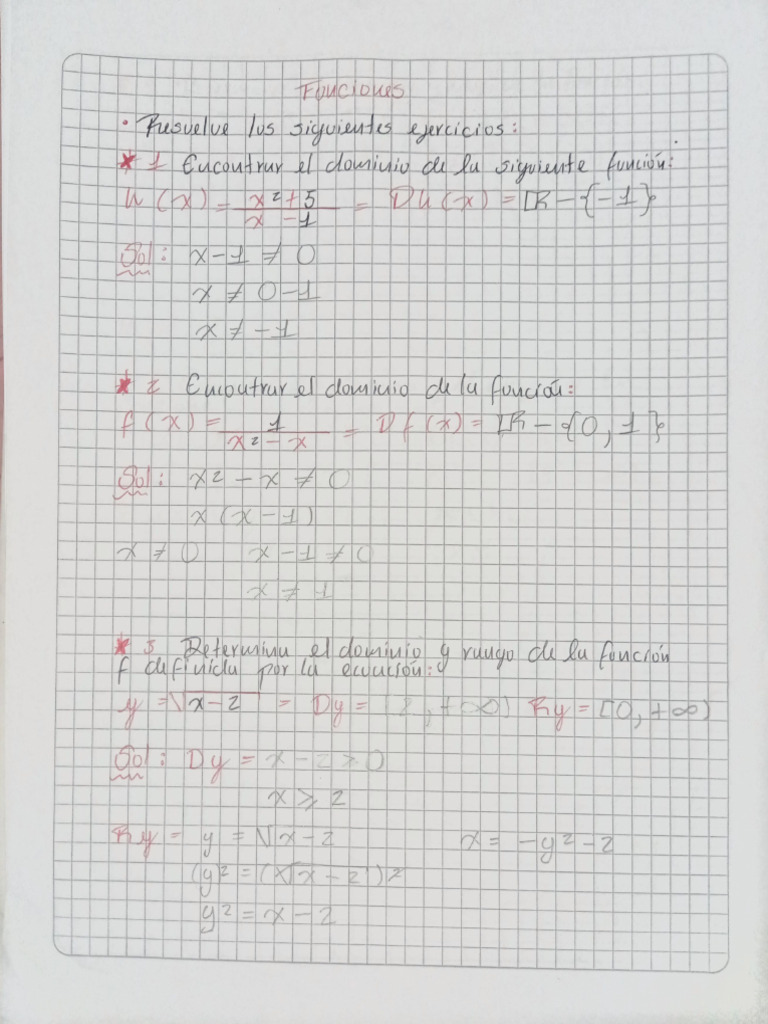 Funciones
• Resuelve los siguientes ejercicios:
* 1 Encontrar el dominio de la siguiente función:
h(x) = x²+5 / x-1 = Dh(x) = ℝ-{-1}
Sol: x-1 ≠ 0
x ≠ 0-1
x ≠ -1
* 2 Encontrar el dominio de la función:
f(x) = 1 / x²-x = Df(x) = ℝ-{0,1}
Sol: x²-x ≠ 0
x(x-1)
x ≠ 0 x-1 ≠ 0
x ≠ 1
* 3 Determina el dominio y rango de la función
f definida por la ecuación:
y = √x-2 = Dy = [2,+∞) Ry = [0,+∞)
Sol: Dy = x-2 ≥ 0
x ≥ 2
Ry = y = √x-2 x = -y²-2
(y² = (√x-2)²
y² = x-2